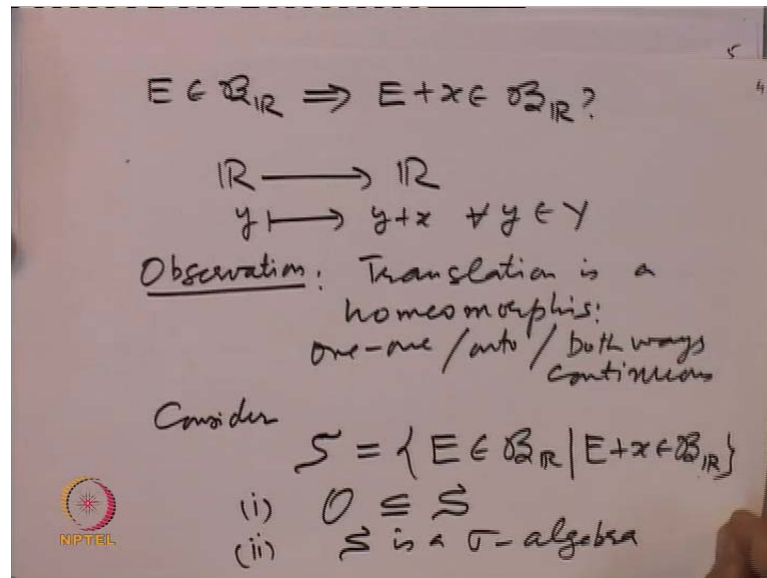 5
4
E ∈ 𝓑_ℝ ⇒ E+x ∈ 𝓑_ℝ?
ℝ ⟶ ℝ
y ⟼ y+x ∀ y ∈ Y
Observation: Translation is a
homeomorphis:
one-one / onto / both ways
continuous
Consider
S = { E ∈ 𝓑_ℝ | E+x ∈ 𝓑_ℝ }
(i) O ⊆ S
(ii) S is a σ-algebra
NPTEL